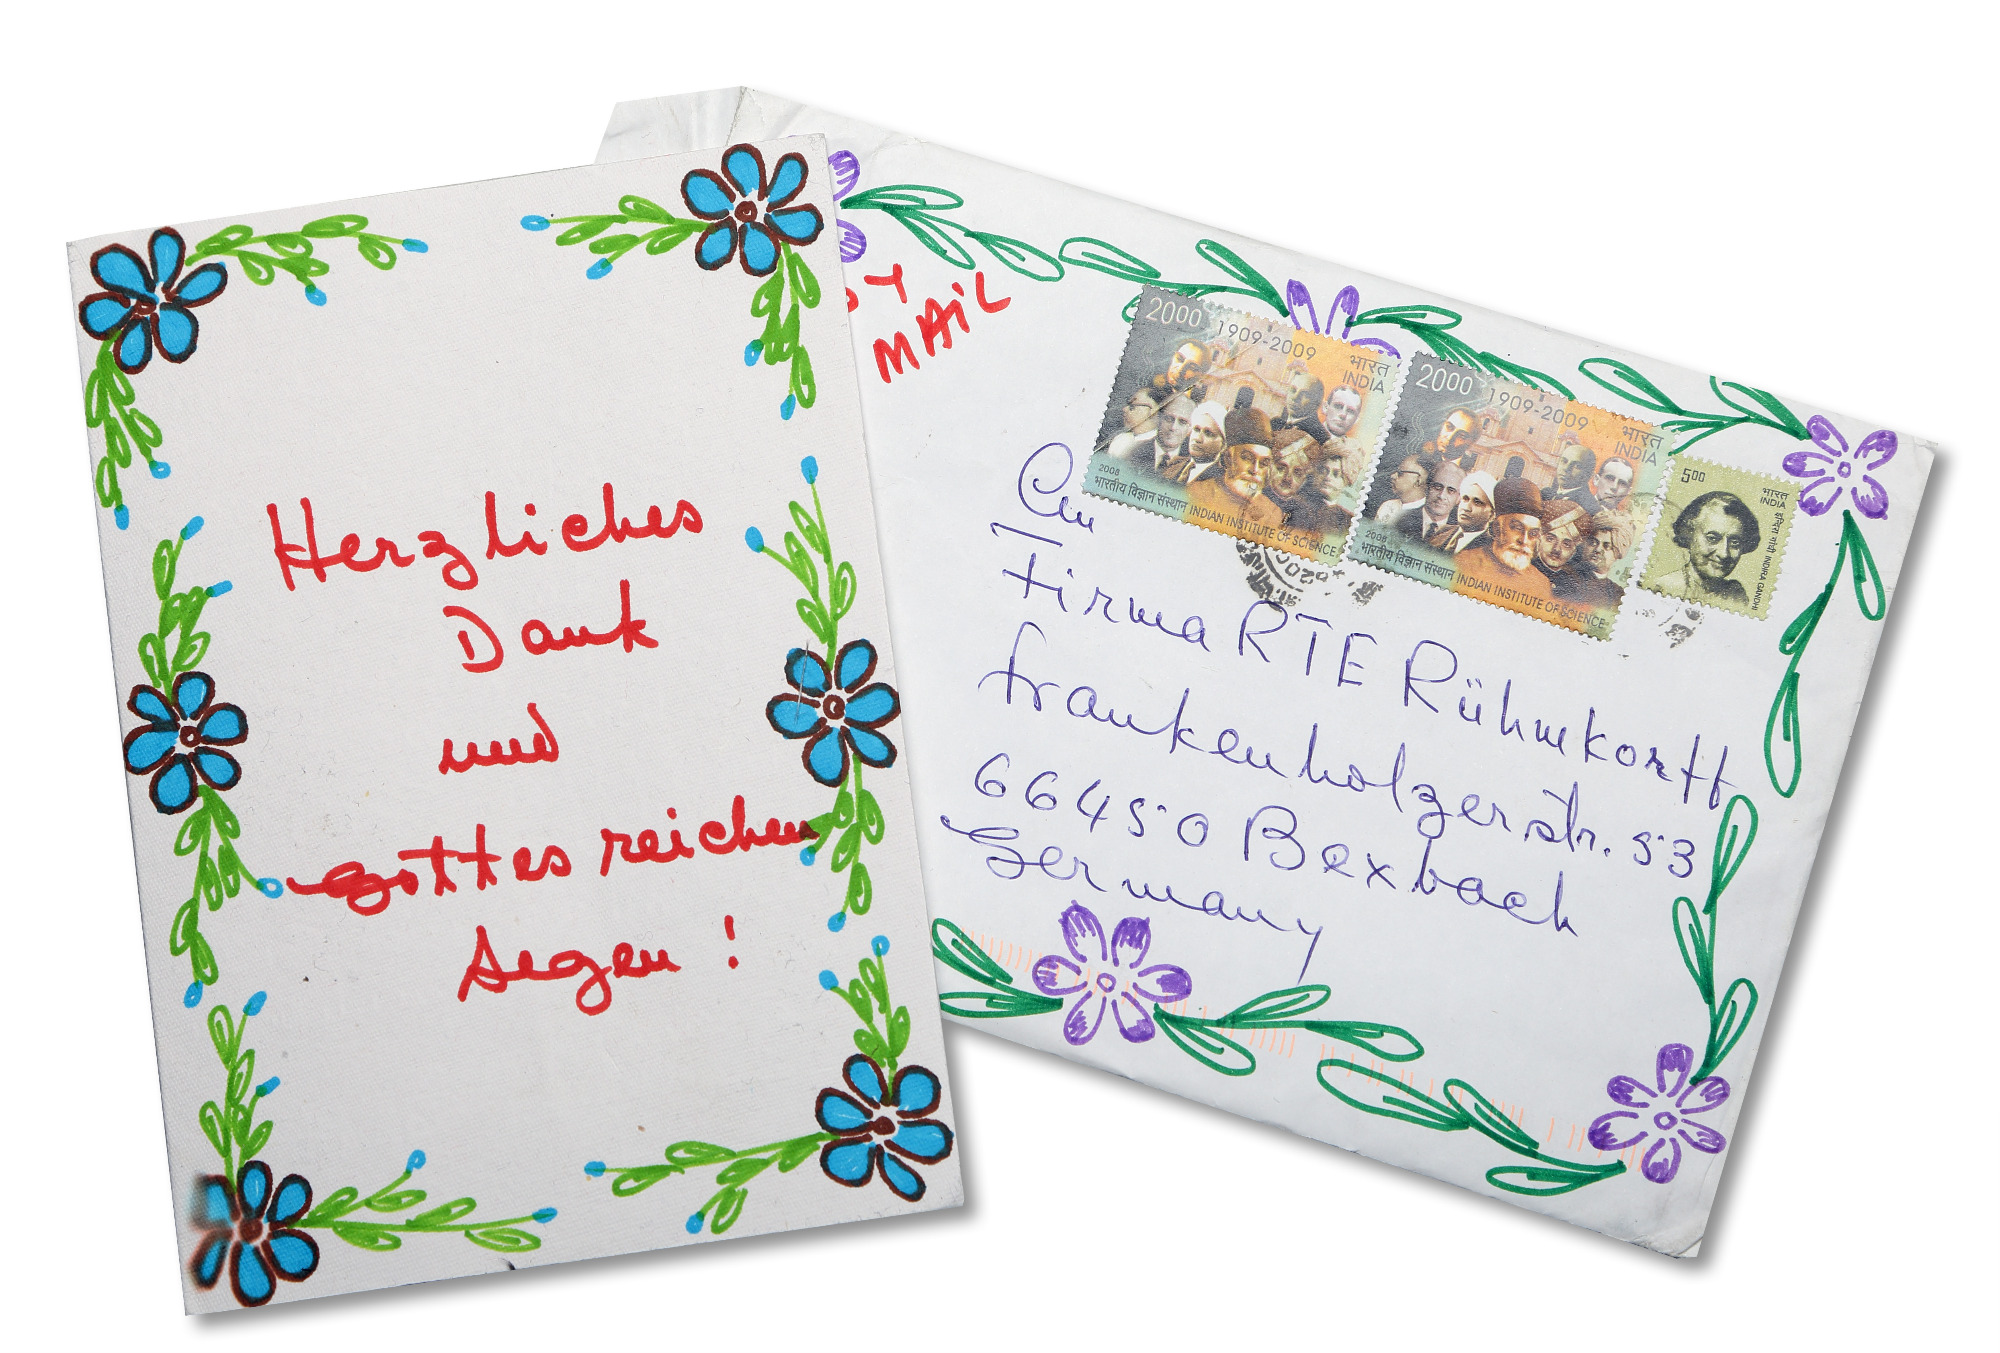 Herzliches
Dank
und
Gottes reichen
Segen!
MAIL
2000 1909-2009
भारत
INDIA
2008
भारतीय विज्ञान संस्थान INDIAN INSTITUTE OF SCIENCE
2000 1909-2009
भारत
INDIA
2008
भारतीय विज्ञान संस्थान INDIAN INSTITUTE OF SCIENCE
500
भारत
INDIA
इन्दिरा गांधी INDIRA GANDHI
An
Firma RTE Rühmkorff
Frankenholzerstr. 53
66450 Bexbach
Germany